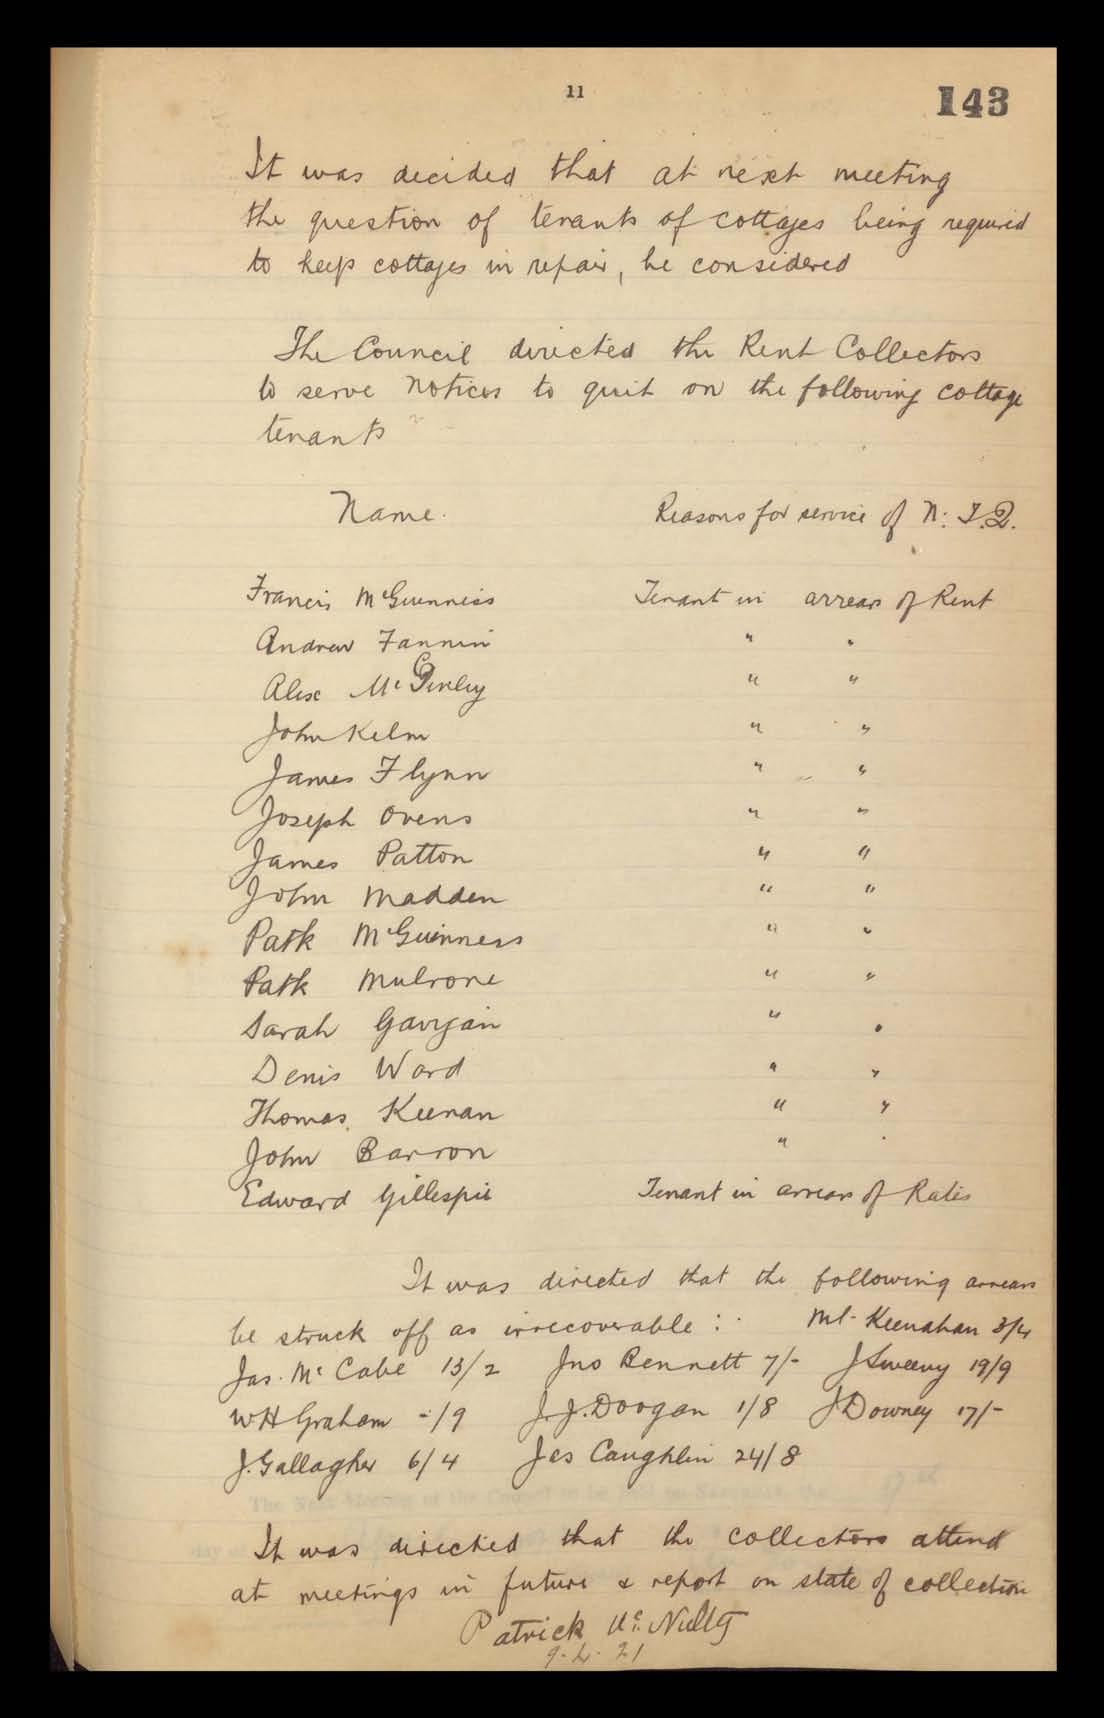 11
143
It was decided that at next meeting
the question of tenants of cottages being required
to keep cottages in repair, be considered
The Council directed the Rent Collectors
to serve notices to quit on the following cottage
tenants
Name. Reasons for service of N. T. Q.
Francis McGuinness Tenant in arrears of Rent
Andrew Fannin " "
Alex McGinley " "
John Kelm " "
James Flynn " "
Joseph Ovens " "
James Patton " "
John Madden " "
Patk McGuinness " "
Patk Mulrone " "
Sarah Gavigan " "
Denis Ward " "
Thomas Keenan " "
John Barron " "
Edward Gillespie Tenant in arrears of Rates
It was directed that the following arrears
be struck off as irrecoverable :- Ml. Keenahan 3/4
Jas. Mc Cabe 13/2 Jno Bennett 7/- J Sweeny 19/9
W H Graham -/9 J. J. Doogan 1/8 J Downey 17/-
J. Gallagher 6/4 Jas Caughlin 24/8
It was directed that the collectors attend
at meetings in future & report on state of collection
Patrick Mc. Nulty
9. 4. 21